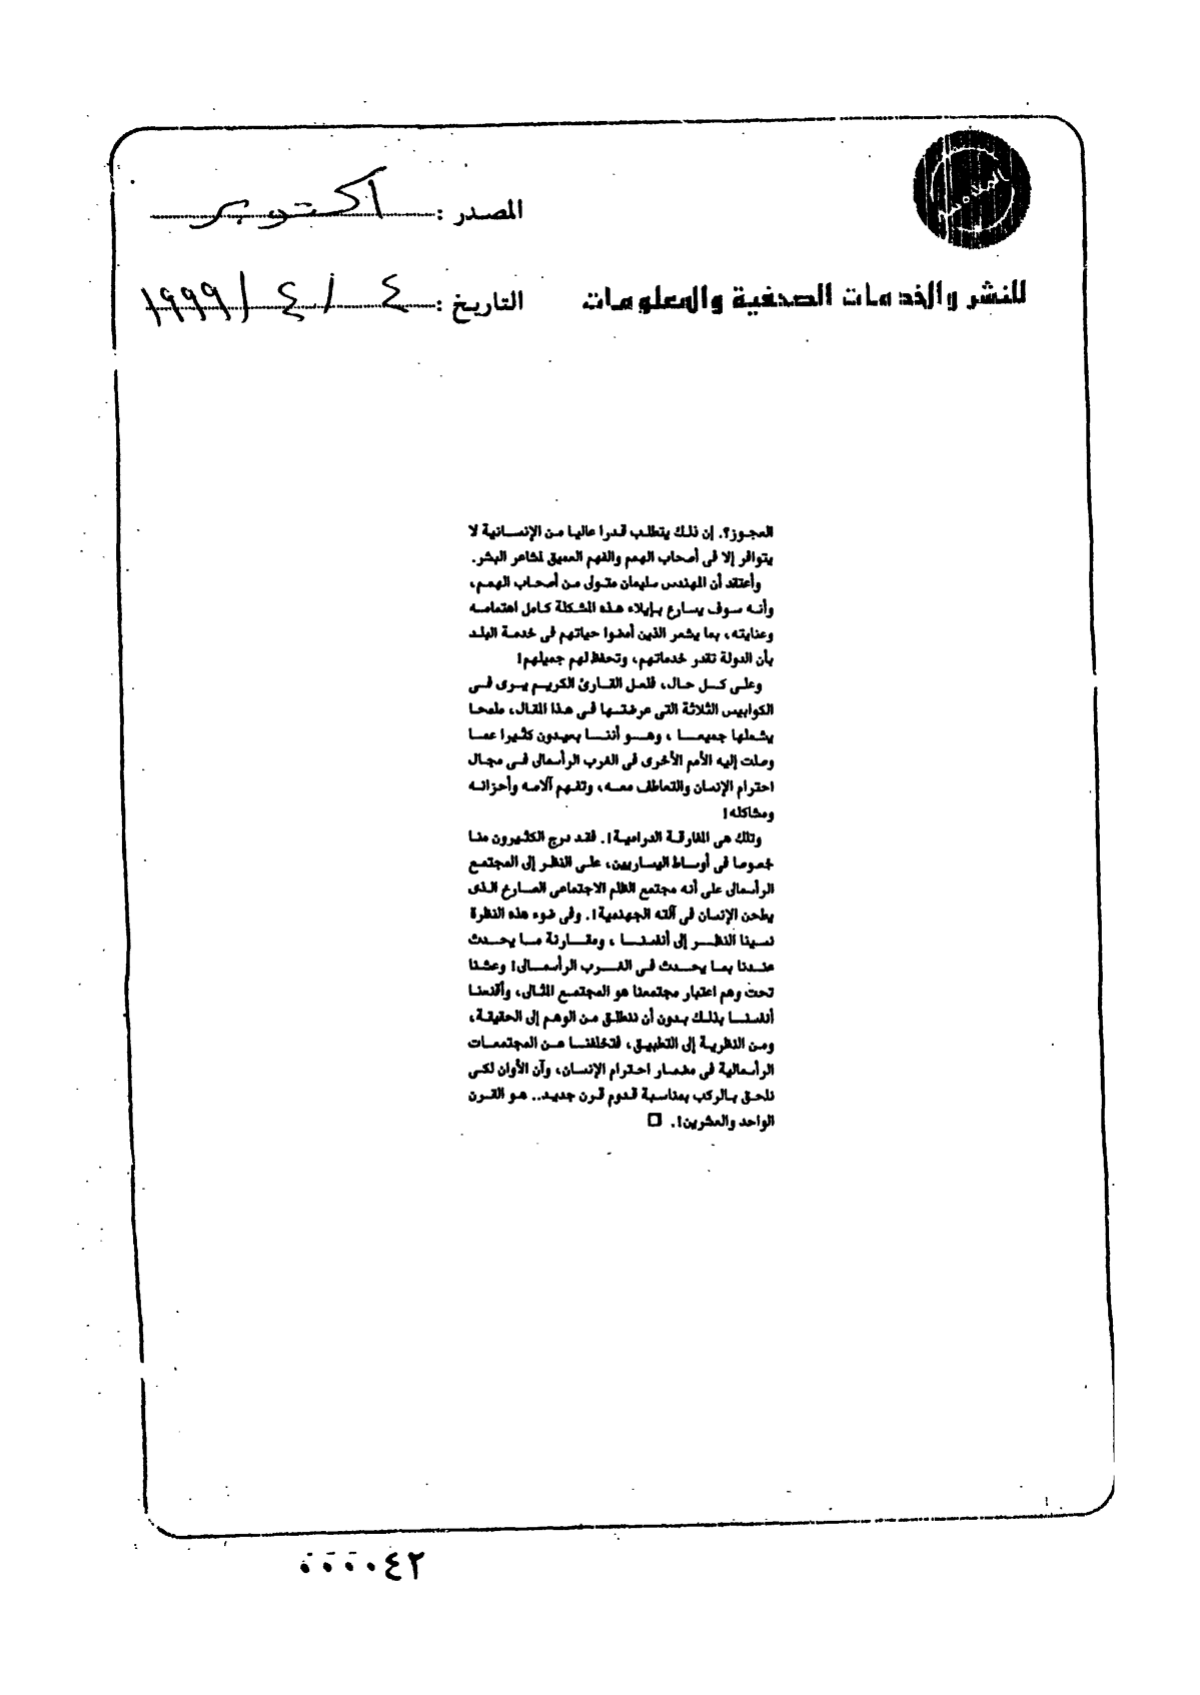 المصدر : أكتوبر
للنشر والخدمات الصحفية والمعلومات
التاريخ : ٤ / ٤ / ١٩٩٩
العجوز؟. إن ذلك يتطلب قدرا عاليا من الإنسانية لا
يتوافر إلا فى أصحاب الهمم والفهم العميق لمشاعر البشر.
وأعتقد أن المهندس سليمان متولى من أصحاب الهمم،
وأنه سوف يسارع بإيلاء هذه المشكلة كامل اهتمامه
وعنايته، بما يشعر الذين أمضوا حياتهم فى خدمة البلد
بأن الدولة تقدر خدماتهم، وتحفظ لهم جميلهم!
وعلى كل حال، فلعل القارئ الكريم يرى فى
الكوابيس الثلاثة التى عرضتها فى هذا المقال، ملمحا
يشملها جميعا ، وهو أننا بعيدون كثيرا عما
وصلت إليه الأمم الأخرى فى الغرب الرأسمالى فى مجال
احترام الإنسان والتعاطف معه، وتفهم آلامه وأحزانه
ومشاكله!
وتلك هى المفارقة الدرامية!. فقد درج الكثيرون منا
خصوصا فى أوساط اليساريين، على النظر إلى المجتمع
الرأسمالى على أنه مجتمع الظلم الاجتماعى الصارخ الذى
يطحن الإنسان فى آلته الجهنمية!. وفى ضوء هذه النظرة
نسينا النظر إلى أنفسنا ، ومقارنة ما يحدث
عندنا بما يحدث فى الغرب الرأسمالى! وعشنا
تحت وهم اعتبار مجتمعنا هو المجتمع المثالى، وأقنعنا
أنفسنا بذلك بدون أن ننطلق من الوهم إلى الحقيقة،
ومن النظرية إلى التطبيق، فتخلفنا عن المجتمعات
الرأسمالية فى مضمار احترام الإنسان، وآن الأوان لكى
نلحق بالركب بمناسبة قدوم قرن جديد.. هو القرن
الواحد والعشرين!.
٠٠٠٠٤٢